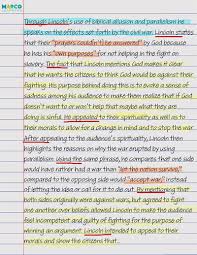 MARCO
Through Lincoln's use of biblical allusion and parallelism he
speaks on the effects set forth by the civil war. Lincoln states
that their "prayers couldn't be answered" by God because
he has his "own purposes" for not helping in the fight on
slavery. The fact that Lincoln mentions God makes it clear
that he wants the citizens to think God would be against their
fighting. His purpose behind doing this is to evoke a sense of
sadness among his audience to make them realize that God
doesn't want to or won't help that maybe what they are
doing is sinful. He appealed to their spirituality as well as to
their morals to allow for a change in mind and to stop the war.
After appealing to the audience's spirituality, Lincoln then
highlights the reasons on why the war erupted by using
parallelism. Using the same phrasing, he compares that one side
would have rather had a war than "let the nation survive"
compared to the opposing side would "accept war" instead
of letting the idea or call for it to die out. By mentioning that
both sides originally were against wars, but agreed to fight
one another over ideals allowed Lincoln to make the audience
feel incompetent and guilty of fighting for the purpose of
winning an argument. Lincoln intended to appeal to their
morals and show the citizens that